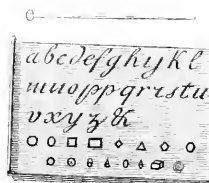 abcdefghijkl
mnopqrstu
vxyz&